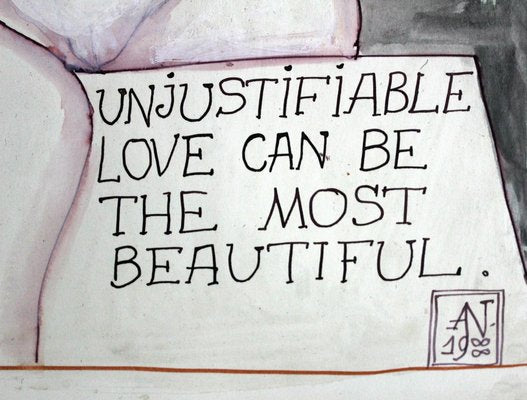 UNJUSTIFIABLE
LOVE CAN BE
THE MOST
BEAUTIFUL.
AN
1988